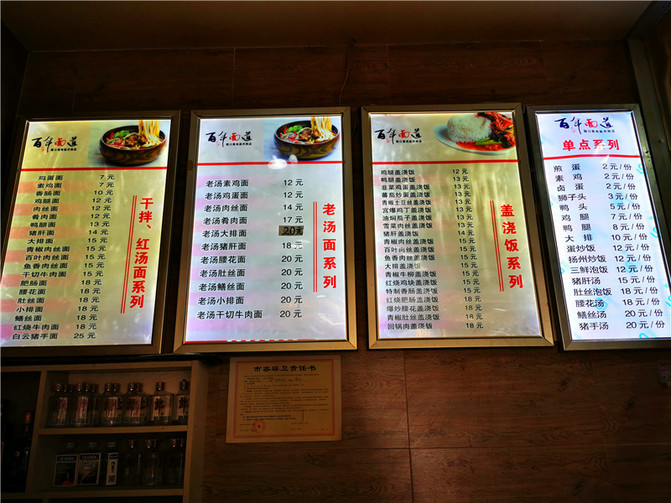 百年面道
干拌、红汤面系列
鸡蛋面 7 元
素鸡面 7 元
香肠面 10 元
鸭腿面 12 元
肉丝面 14 元
肴肉面 12 元
鸭腿面 13 元
猪肝面 14 元
大排面 15 元
青椒肉丝面 15 元
百叶肉丝面 15 元
鱼香肉丝面 15 元
干切牛肉面 15 元
肥肠面 18 元
腰花面 18 元
肚丝面 18 元
小排面 18 元
鳝丝面 18 元
红烧牛肉面 18 元
白云猪手面 25 元
百年面道
老汤面系列
老汤素鸡面 12 元
老汤鸡蛋面 12 元
老汤肉丝面 14 元
老汤肴肉面 17 元
老汤大排面 20元
老汤猪肝面 18元
老汤腰花面 20 元
老汤肚丝面 20 元
老汤鳝丝面 20 元
老汤小排面 20 元
老汤干切牛肉面 20 元
百年面道
盖浇饭系列
鸡腿盖浇饭 13 元
鸭腿盖浇饭 13 元
韭菜鸡蛋盖浇饭 12 元
蕃茄炒蛋盖浇饭
青椒土豆丝盖浇饭
宫爆鸡丁盖浇饭
油焖茄子盖浇饭
雪菜肉丝盖浇饭
猪肝盖浇饭
青椒肉丝盖浇饭
百叶肉丝盖浇饭
鱼香肉丝盖浇饭 15 元
大排盖浇饭 15 元
青椒牛柳盖浇饭
红烧鸡块盖浇饭
特制香肠盖浇饭
红烧肥肠盖浇饭 18 元
爆炒腰花盖浇饭 18 元
青椒肚丝盖浇饭 18 元
回锅肉盖浇饭 18 元
百年面道
单点系列
煎蛋 2 元/份
素鸡 2 元/份
卤蛋 2 元/份
狮子头 3 元/份
鸭头 5 元/份
鸡腿 7 元/份
鸭腿 7 元/份
大排 10 元/份
蛋炒饭 12 元/份
扬州炒饭 12 元/份
三鲜泡饭 12 元/份
猪肝汤 15 元/份
肚丝泡饭 18 元/份
腰花汤 18 元/份
鳝丝汤 20 元/份
猪手汤 20 元/份
市容环卫责任书